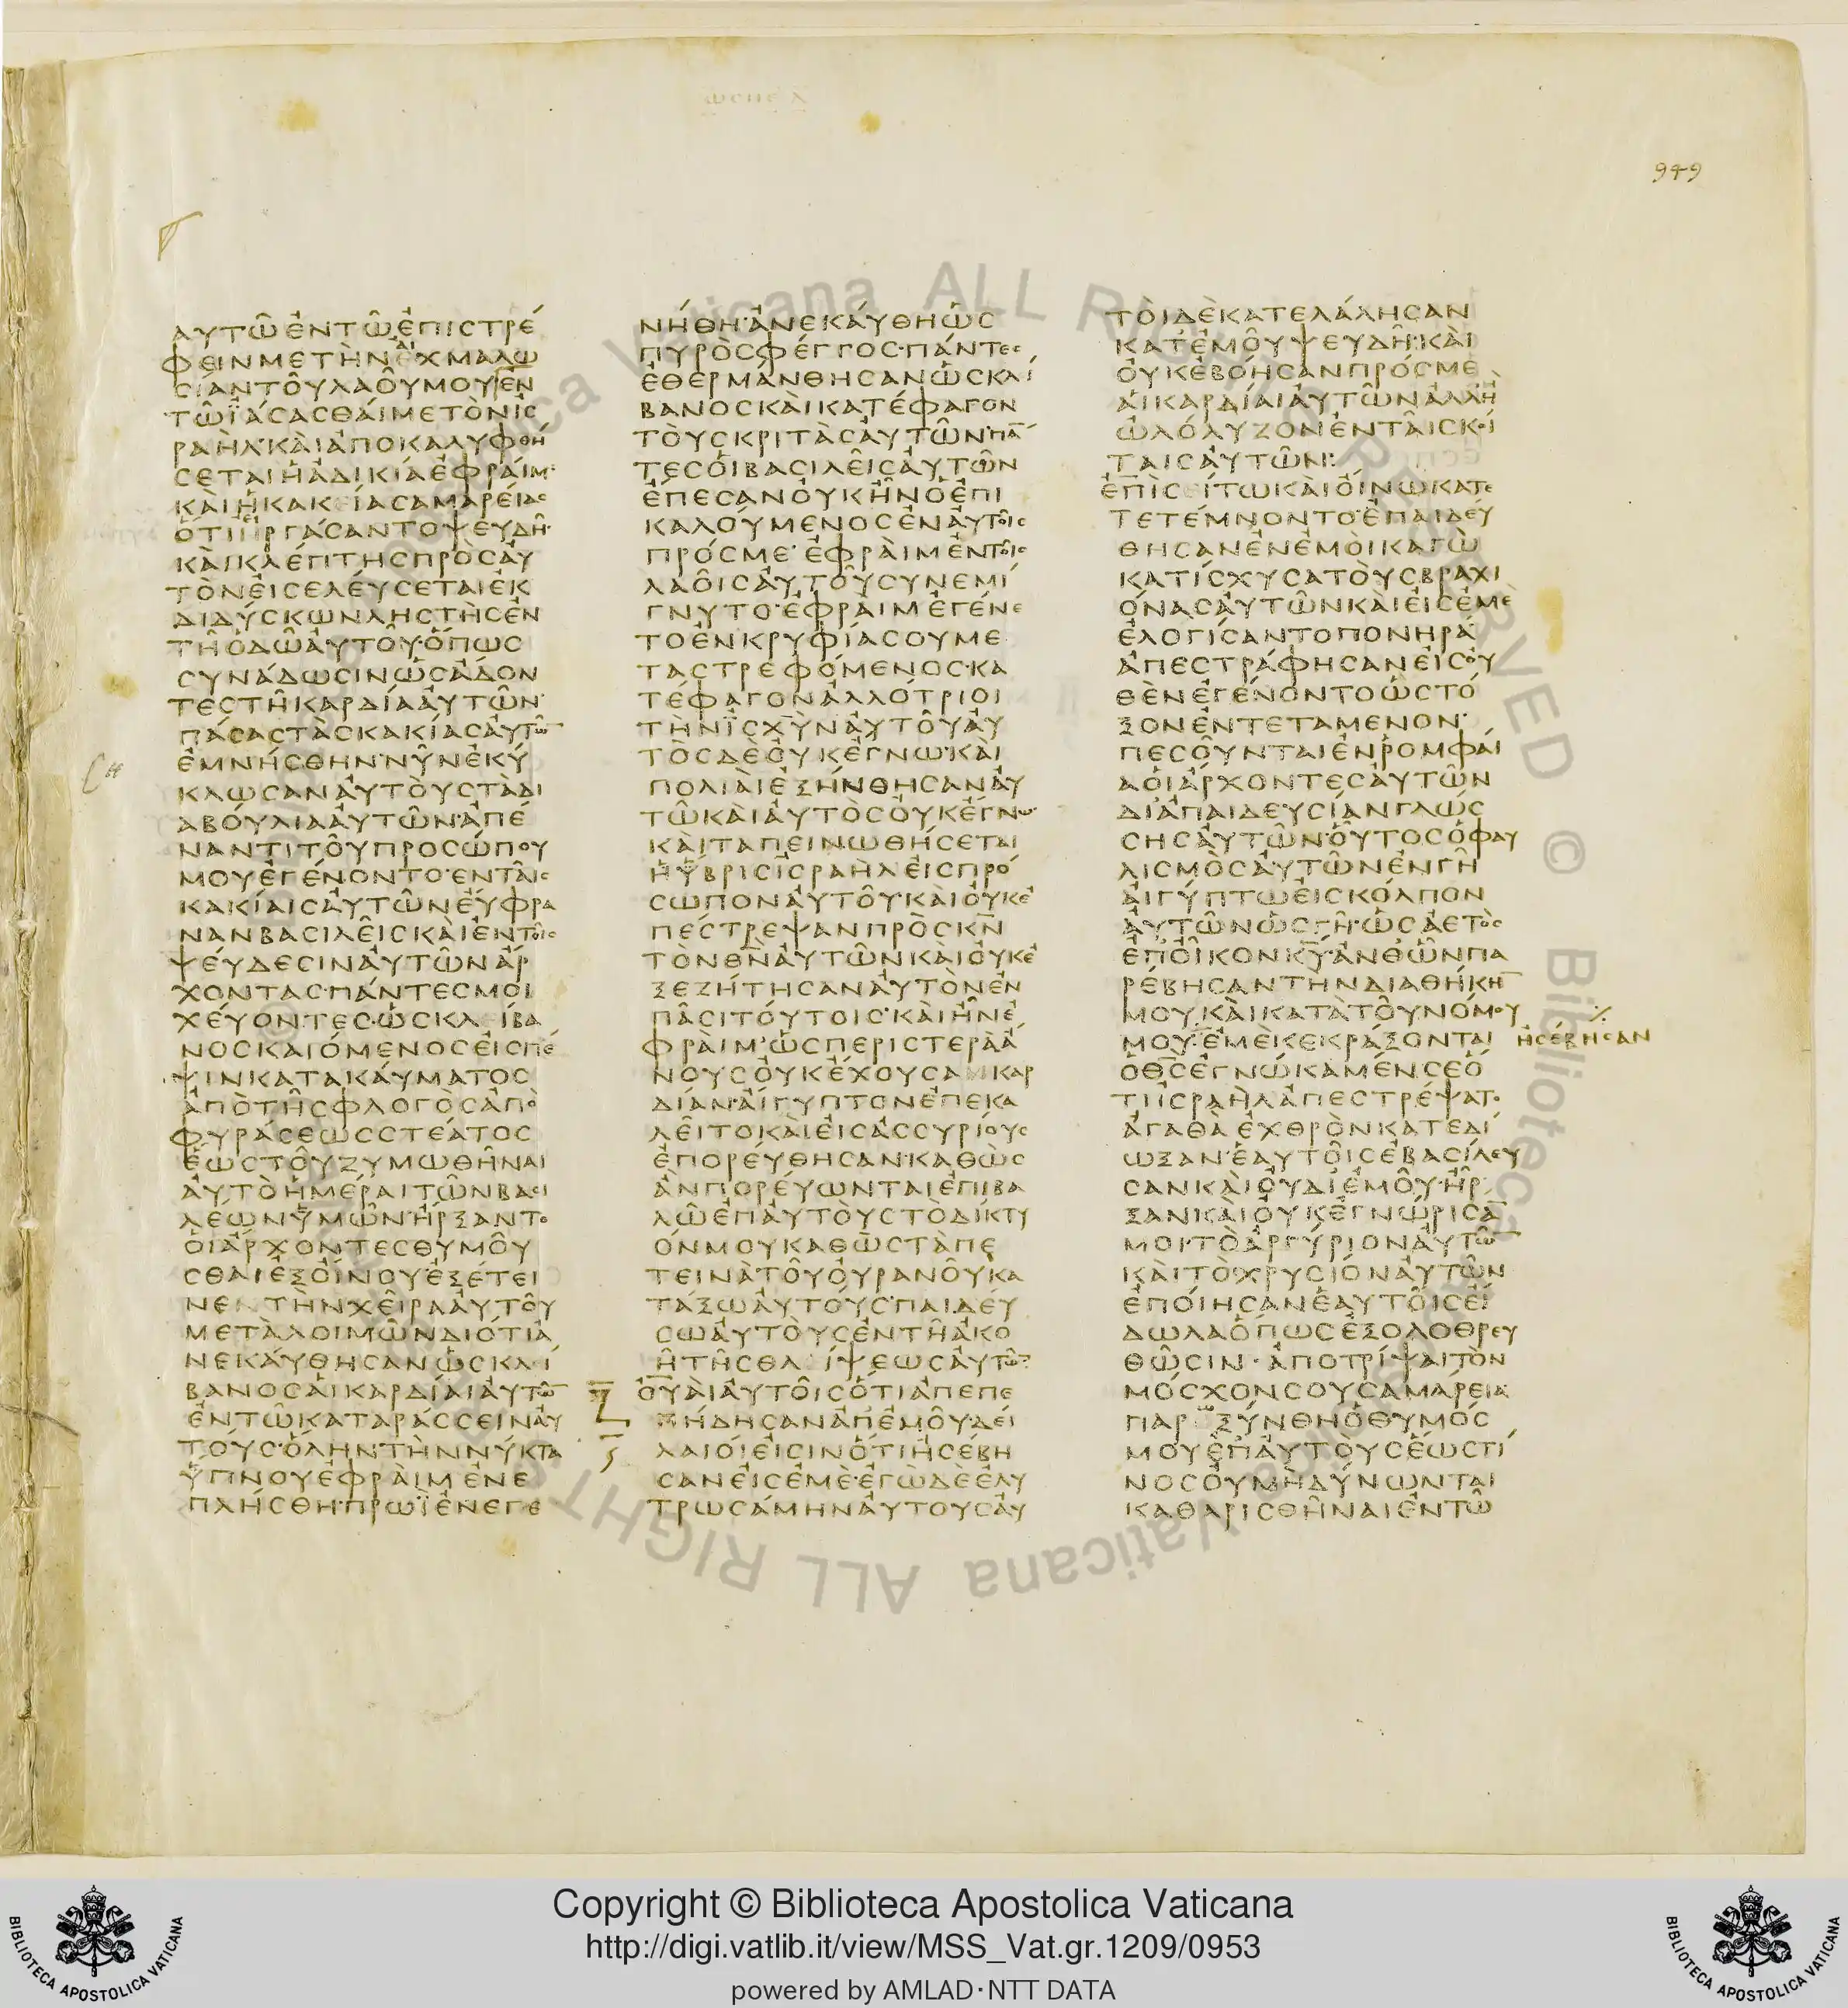 949
ΑΥΤΩ͂ ἘΝΤΩ͂ ἘΠΙϹΤΡΈ
ΦΕΙΝΜΕΤῊΝΑἸΧΜΑΛΩ
ϹΊΑΝΤΟΥ͂ΛΑΟΥ͂ΜΟΥἘΝ
ΤΩ͂ΪΆϹΑϹΘΑΊΜΕΤῸΝΙϹ
ΡΑῊΛ·ΚΑῚἈΠΟΚΑΛΥΦΘΉ
ϹΕΤΑΙἩἈΔΙΚΊΑἘΦΡΆΙΜ·
ΚΑῚἩΚΑΚΕΊΑϹΑΜΑΡΕΊΑϹ
ὍΤΙΕἸΡΓΆϹΑΝΤΟΨΕΥΔΗ͂·
ΚΑῚΚΛΈΠΤΗϹΠΡῸϹΑΥ
ΤῸΝΕἸϹΕΛΕΎϹΕΤΑΙἘΚ
ΔΙΔΎϹΚΩΝΛΗϹΤῊϹἘΝ
ΤΗ͂ὉΔΩ͂ΑΥΤΟΥ͂·ὍΠΩϹ
ϹΥΝΆΔΩϹΙΝΩϹΑΔΟΝ
ΤΕϹΤΗ͂ΚΑΡΔΊΑΑΥΤΩ͂Ν·
ΠΆϹΑϹΤᾺϹΚΑΚΊΑϹΑΥΤΩ̅
ἘΜΝΉϹΘΗΝ·ΝΥ͂ΝἘΚΎ
ΚΛΩϹΑΝΑΥΤΟῪϹΤᾺΔΙ
ΑΒΟΎΛΙΑΑΥΤΩ͂Ν·ἈΠΈ
ΝΑΝΤΙΤΟΥ͂ΠΡΟϹΏΠΟΥ
ΜΟΥἘΓΈΝΟΝΤΟ·ΕΝΤΑΙ͂Ϲ
ΚΑΚΊΑΙϹΑΥΤΩ͂ΝΕΥΦΡΑ
ΝΑΝΒΑϹΙΛΕΙ͂Ϲ·ΚΑῚἘΝΤΟΙ͂Ϲ
ΨΕΎΔΕϹΙΝΑΥΤΩ͂ΝἈΡ
ΧΟΝΤΑϹ·ΠΆΝΤΕϹΜΟΙ
ΧΕΎΟΝΤΕϹ·ὩϹΚΛΕΊΒΑ
ΝΟϹΚΑΙΌΜΕΝΟϹΕἸϹΠΈ
ΨΙΝΚΑΤΑΚΑΎΜΑΤΟϹ
ἈΠῸΤΗ͂ϹΦΛΟΓῸϹἈΠῸ
ΦΥΡΆϹΕΩϹϹΤΈΑΤΟϹ
ἝΩϹΤΟΥ͂ΖΥΜΩΘΗ͂ΝΑΙ
ΑΥΤῸἩΜΈΡΑΙΤΩ͂ΝΒΑϹΙ
ΛΈΩΝΫΜΩ͂Ν·ἬΡΞΑΝΤΟ
ΟἹἌΡΧΟΝΤΕϹΘΥΜΟΥ͂
ϹΘΑΙἘΞΟἼΝΟΥ·ἘΞΈΤΕΙ
ΝΕΝΤῊΝΧΕΙ͂ΡΑΑΥΤΟΥ͂
ΜΕΤᾺΛΟΙΜΩ͂ΝΔΙΌΤΙΑ
ΝΕΚΑΎΘΗϹΑΝὩϹΚΛΕΊ
ΒΑΝΟϹΑἹΚΑΡΔΊΑΙΑΥΤΩ̅
ἘΝΤΩ͂ΚΑΤΑΡΆϹϹΕΙΝΑΥ
ΤΟΎϹ·ὍΛΗΝΤῊΝΝΎΚΤΑ
ὝΠΝΟΥἘΦΡᾺΙΜἘΝΕ
ΠΛΉϹΘΗ·ΠΡΩΪἘΝΕΓΕ
ΝΉΘΗ·ἈΝΕΚΑΎΘΗὩϹ
ΠΥΡῸϹΦΈΓΓΟϹ·ΠΆΝΤΕϹ
ἘΘΕΡΜΆΝΘΗϹΑΝὩϹΚΛΊ
ΒΑΝΟϹΚΑῚΚΑΤΈΦΑΓΟΝ
ΤΟῪϹΚΡΙΤᾺϹΑΥΤΩ͂Ν·ΠΑ̅
ΤΕϹΟἹΒΑϹΙΛΕΙ͂ϹΑΥΤΩ͂Ν
ἜΠΕϹΑΝΟΥΚἮΝὉἘΠΙ
ΚΑΛΟΎΜΕΝΟϹἘΝΑΥΤΟΙ͂Ϲ
ΠΡΌϹΜΕ· ἘΦΡᾺΙΜἘΝΤΟΙ͂Ϲ
ΛΑΟΙ͂ϹΑΥΤΟΥ͂ϹΥΝΕΜΊ
ΓΝΥΤΟ·ἘΦΡᾺΙΜἘΓΈΝΕ
ΤΟἘΝΚΡΥΦΊΑϹΟΥΜΕ
ΤΑϹΤΡΕΦΌΜΕΝΟϹ·ΚΑ
ΤΕΦΑΓΟΝΑΛΛΌΤΡΙΟΙ
ΤῊΝΪϹΧῪΝΑΥΤΟΥ͂ΑΥ
ΤῸϹΔῈΟΥΚἜΓΝΩ·ΚΑῚ
ΠΟΛΙΑῚἘΞΉΝΘΗϹΑΝΑΥ
ΤΩ͂ΚΑῚΑΥΤῸϹΟΥΚἜΓΝΩ·
ΚΑῚΤΑΠΕΙΝΩΘΉϹΕΤΑΙ
ἩΫΒΡΙϹΪϹΡΑῊΛΕΙϹΠΡΌ
ϹΩΠΟΝΑΥΤΟΥ͂ΚΑῚΟΥΚΈ
ΠΕϹΤΡΕΨΑΝΠΡῸϹΚ̅Ν̅
ΤῸΝΘ̅Ν̅ΑΥΤΩ͂ΝΚΑῚΟΥΚΈ
ΞΕΖΉΤΗϹΑΝΑΥΤῸΝἘΝ
ΠΑ͂ϹΙΤΟΎΤΟΙϹ·ΚΑῚἮΝἘ
ΦΡᾺΙΜ·ὩϹΠΕΡΙϹΤΕΡᾺἌ
ΝΟΥϹΟΥΚἜΧΟΥϹΑΝΚΑΡ
ΔΊΑΝ·ΑἼΓΥΠΤΟΝἘΠΕΚΑ
ΛΕΙΤΟΚΑῚΕἸϹἈϹϹΥΡΊΟΥϹ
ἘΠΟΡΕΎΘΗϹΑΝ·ΚΑΘῺϹ
ἊΝΠΟΡΕΎΩΝΤΑΙἘΠΙΒΑ
ΛΩ͂ἘΠΑΥΤΟῪϹΤῸΔΊΚΤΥ
ΟΝΜΟΥΚΑΘῺϹΤᾺΠΕ
ΤΕΙΝᾺΤΟΥ͂ΟΥΡΑΝΟΥ͂ΚΑ
ΤΆΞΩΑΥΤΟΎϹ·ΠΑΙΔΕΎ
ϹΩΑΥΤΟῪϹἘΝΤΗ͂ἈΚΟ
Η͂ΤΗ͂ϹΘΛΕΊΨΕΩϹΑΥΤΩ̅:
Ζ
ΟΥΑῚΑΥΤΟΙ͂ϹὍΤΙἈΠΕΠΕ
ΞΉΔΗϹΑΝἈΠἘΜΟΥ͂·ΔΕΊ
ΛΑΙΟΊΕἸϹΙΝὍΤΙἨϹΈΒΗ
ϹΑΝΕἸϹἘΜΈ·ἘΓῺΔῈἘΛΥ
ΤΡΩϹΆΜΗΝΑΥΤΟΥϹΑΥ
ΤΟῚΔῈΚΑΤΕΛΆΛΗϹΑΝ
ΚΑΤἘΜΟΥ͂ΨΕΥΔΗ͂·ΚΑῚ
ΟΥΚἘΒΌΗϹΑΝΠΡΌϹΜΕ
ΑἹΚΑΡΔΊΑΙΑΥΤΩ͂ΝἈΛΛΗ
ὨΛΌΛΥΖΟΝἘΝΤΑΙ͂ϹΚΟΊ
ΤΑΙϹΑΥΤΩ͂Ν:
ἘΠῚϹΕΊΤΩΚΑῚΟἼΝΩΚΑΤΕ
ΤΕΤΈΜΝΟΝΤΟ·ἘΠΑΙΔΕΥ
ΘΗϹΑΝἘΝἘΜΟῚΚΑΓῺ
ΚΑΤΊϹΧΥϹΑΤΟῪϹΒΡΑΧΙ
ΟΝΑϹΑΥΤΩ͂ΝΚΑῚΕἸϹἘΜῈ
ἘΛΟΓΊϹΑΝΤΟΠΟΝΗΡΆ
ἈΠΕϹΤΡΆΦΗϹΑΝΕἸϹΟΥ
ΘῈΝἘΓΈΝΟΝΤΟὩϹΤΌ
ΞΟΝἘΝΤΕΤΑΜΕΝΟΝ·
ΠΕϹΟΥ͂ΝΤΑΙἘΝΡΟΜΦΑΊ
ΑΟἹἌΡΧΟΝΤΕϹΑΥΤΩ͂Ν
ΔΙἈΠΑΙΔΕΥϹΊΑΝΓΛΏϹ
ϹΗϹΑΥΤΩ͂Ν·ΟΥΤΟϹὉΦΑΥ
ΛΙϹΜῸϹΑΥΤΩ͂ΝἘΝΓΗ͂
ΑἸΓΎΠΤΩΕἸϹΚΌΛΠΟΝ
ΑΥΤΩ͂ΝὩϹΓΗ͂·ὩϹἈΕΤῸϹ
ἘΠΟἾΚΟΝΚ̅Υ̅·ἈΝΘΩ͂ΝΠΑ
ΡΈΒΗϹΑΝΤῊΝΔΙΑΘΉΚΗ̅
ΜΟΥ·ΚΑῚΚΑΤᾺΤΟΥ͂ΝΌΜΟΥ
ΜΟΥ·ἘΜῈΚΕΚΡΆΞΟΝΤΑΙ ἨϹΈΒΗϹΑΝ
ὉΘ̅Ϲ̅ἘΓΝΏΚΑΜΈΝϹΕὍ
ΤΙΙϹΡΑῊΛἈΠΕϹΤΡΈΨΑΤΟ
ἈΓΑΘᾺἘΧΘΡῸΝΚΑΤΕΔΊ
ΩΞΑΝ·ἙΑΥΤΟΙ͂ϹἘΒΑϹΊΛΕΥ
ϹΑΝΚΑῚΟΥΔΙἘΜΟΥ͂·ἮΡ
ΞΑΝΚΑῚΟΥΚἘΓΝΏΡΙϹΑ̅
ΜΟΙ·ΤῸἈΡΓΎΡΙΟΝΑΥΤΩ̅
ΚΑῚΤῸΧΡΥϹΊΟΝΑΥΤΩ͂Ν
ἘΠΟΊΗϹΑΝἙΑΥΤΟΙ͂ϹΕἼ
ΔΩΛΑὍΠΩϹἘΞΟΛΟΘΡΕΥ
ΘΩ͂ϹΙΝ·ἈΠΟΤΡΊΨΑΙΤῸΝ
ΜΌϹΧΟΝϹΟΥϹΑΜΆΡΕΙΑ
ΠΑΡΩΞΎΝΘΗὉΘΥΜΌϹ
ΜΟΥἘΠΑΥΤΟῪϹἝΩϹΤΊ
ΝΟϹΟΥΜῊΔΎΝΩΝΤΑΙ
ΚΑΘΑΡΙϹΘΗ͂ΝΑΙἘΝΤΩ͂
Copyright © Biblioteca Apostolica Vaticana
http://digi.vatlib.it/view/MSS_Vat.gr.1209/0953
powered by AMLAD·NTT DATA
BIBLIOTECA APOSTOLICA VATICANA
BIBLIOTECA APOSTOLICA VATICANA